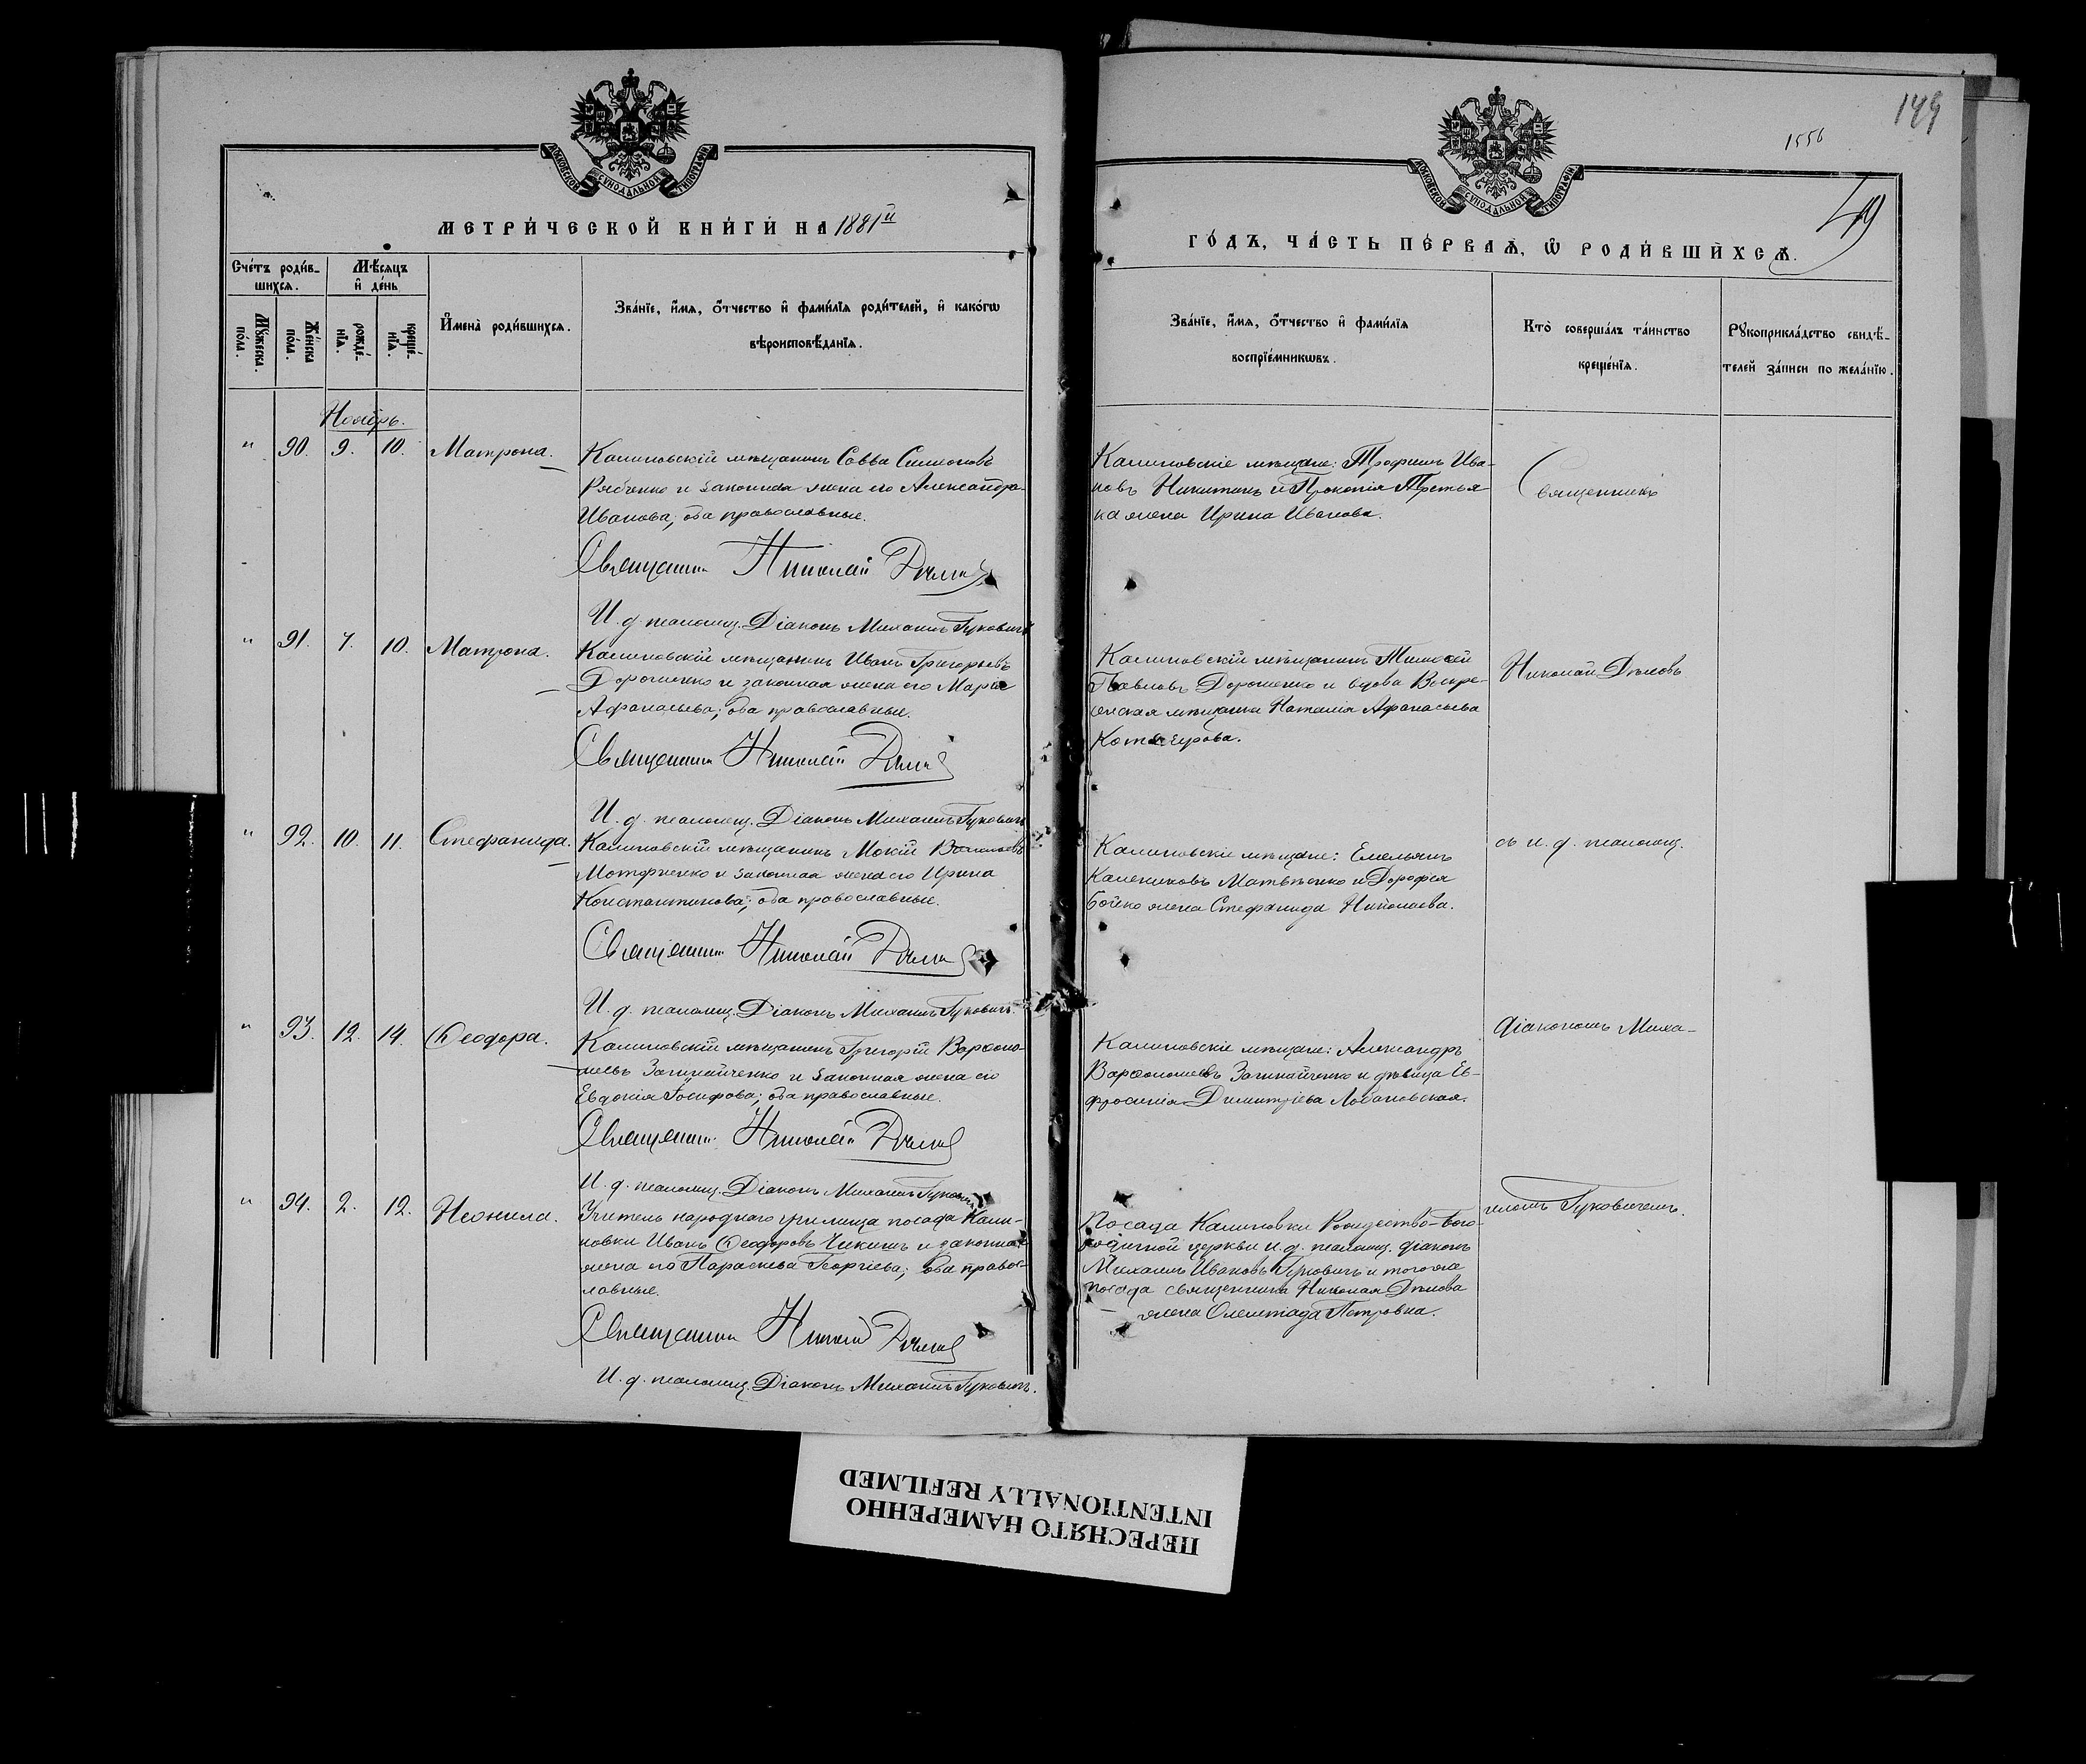 МОСКОВСКОЙ СѴНОДАЛЬНОЙ ТИПОГРАФІИ
МЕТРИ́ЧЕСКОЙ КНИ́ГИ НА 1881й
Сче́тъ роди́в-
шихсѧ.
Мѣ́сѧцъ
и҆ де́нь
Мꙋ́жеска
по́ла.
Же́нска
по́ла.
рожде́-
нїѧ.
креще́-
нїѧ.
И҆мена̀ роди́вшихсѧ.
Зва́нїе, и҆́мѧ, ѻ҆́тчество и҆ фами́лїѧ роди́телей, и҆ како́гѡ
вѣроисповѣ́данїѧ.
Ноябрь.
" 90. 9. 10. Матрона.
Калиновскій мѣщанинъ Савва Симеоновъ
Рябченко и законная жена его Александра
Иванова; оба православные.
Священникъ Николай Дѣмов
И. д. псаломщ. Діаконъ Михаилъ Гуковичъ
" 91. 7. 10. Матрона.
Калиновскій мѣщанинъ Иванъ Григорьевъ
Дорошенко и законная жена его Марія
Афанасьева; оба православные.
Священникъ Николай Дѣмов
И. д. псаломщ. Діаконъ Михаилъ Гуковичъ
" 92. 10. 11. Стефанида.
Калиновскій мѣщанинъ Мокій
и законная жена его Ирина
Константинова; оба православные.
Священникъ Николай Дѣмов
И. д. псаломщ. Діаконъ Михаилъ Гуковичъ
" 93. 12. 14. Ѳеодора.
Калиновскій мѣщанинъ Григорій Варсоно-
фіевъ Загинайченко и законная жена его
Евдокія Іосифова; оба православные.
Священникъ Николай Дѣмов
И. д. псаломщ. Діаконъ Михаилъ Гуковичъ
" 94. 2. 12. Неонила.
Учитель народнаго училища посада Кали-
новки Иванъ Ѳеодоровъ и законная
жена его Параскева Георгіева; оба право-
славные.
Священникъ Николай Дѣмов
И. д. псаломщ. Діаконъ Михаилъ Гуковичъ.
149
1556
49
МОСКОВСКОЙ СѴНОДАЛЬНОЙ ТИПОГРАФІИ
ГО́ДЪ, ЧА́СТЬ ПЕ́РВАѦ, Ѡ РОДИ́ВШИХСѦ.
Зва́нїе, и҆́мѧ, ѻ҆́тчество и҆ фами́лїѧ
воспрїе́мникѡвъ.
Кто̀ соверша́лъ та́инство
креще́нїѧ.
Рꙋкоприкла́дство свидѣ́-
телей за́писи по жела́нїю.
Калиновскіе мѣщане: Трофимъ Ива-
новъ Никитинъ и Прокопія Третья-
ка жена Ирина Иванова.
Священникъ
Калиновскій мѣщанинъ Тимоѳей
Павловъ Дорошенко и вдова Воскре-
сенская мѣщанка Наталія Афанасьева
Николай Дѣмовъ
Калиновскіе мѣщане: Емельянъ
Калениковъ Матвѣенко и Дорофея
Бойко жена Стефанида Николаева.
съ и. д. псаломщ.
Калиновскіе мѣщане: Александръ
Варсонофіевъ Загинайченко и дѣвица Ев-
фросинія Димитріева Лобановская.
діакономъ Миха-
Посада Калиновки Рождество-Бого-
родичной церкви и. д. псаломщ. діаконъ
Михаилъ Ивановъ Гуковичъ и того же
посада священника Николая Дѣмова
жена Олимпіада Петровна.
иломъ Гуковичемъ.
ПЕРЕСНЯТО НАМЕРЕННО
INTENTIONALLY REFILMED